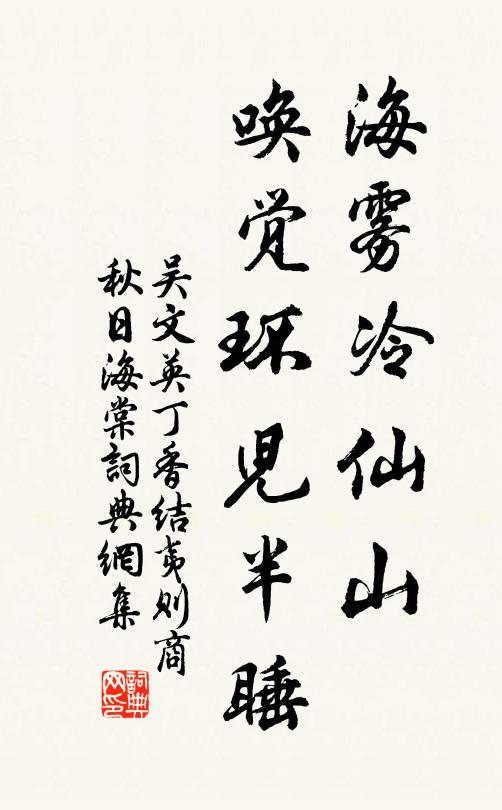 海雾冷仙山
唤觉环儿半睡
吴文英丁香结夷则商
秋日海棠詞典網集
詞典网印